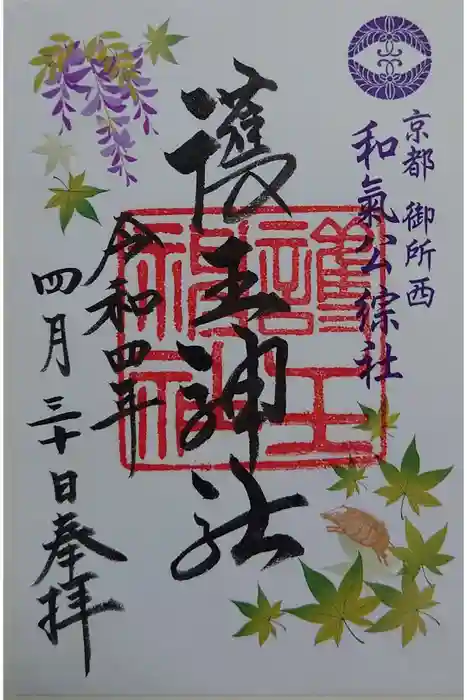 京都 御所西
和氣公綜社
護王神社
護王
神社
令和四年
四月三十日奉拝